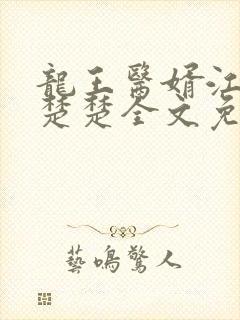 龍王醫婿江
楚楚全文免
藝鳴驚人